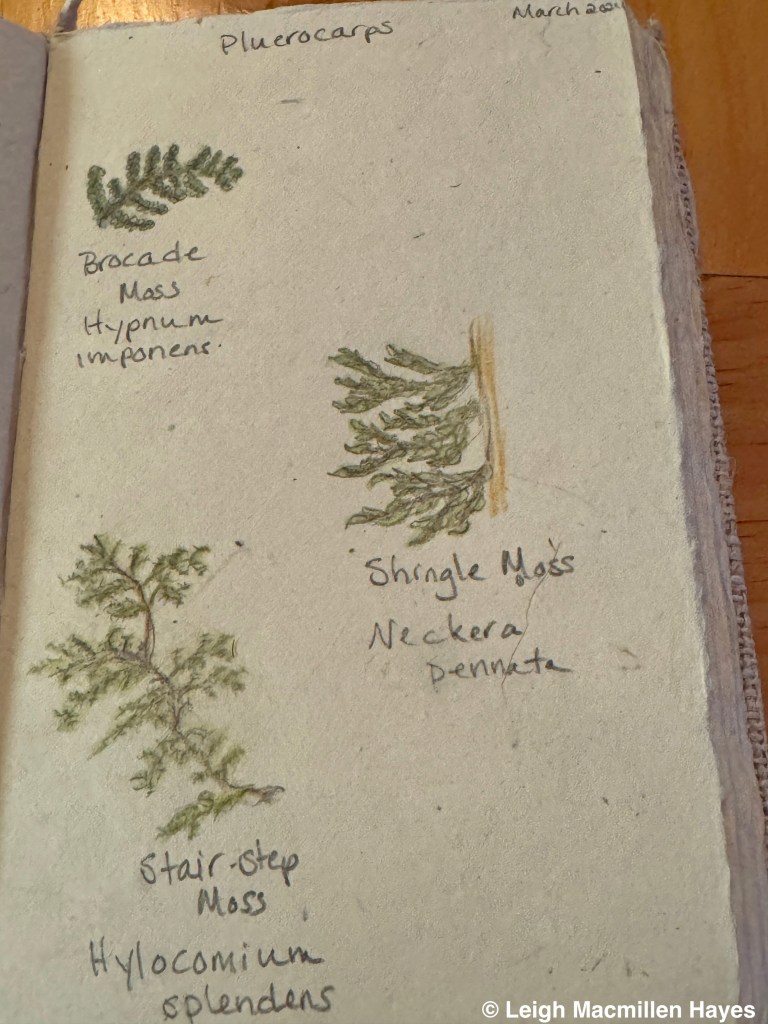 Pluerocarps
March 2024
Brocade
Moss
Hypnum
imponens.
Shingle Moss
Neckera
pennata
Stair-step
Moss
Hylocomium
splendens
© Leigh Macmillen Hayes